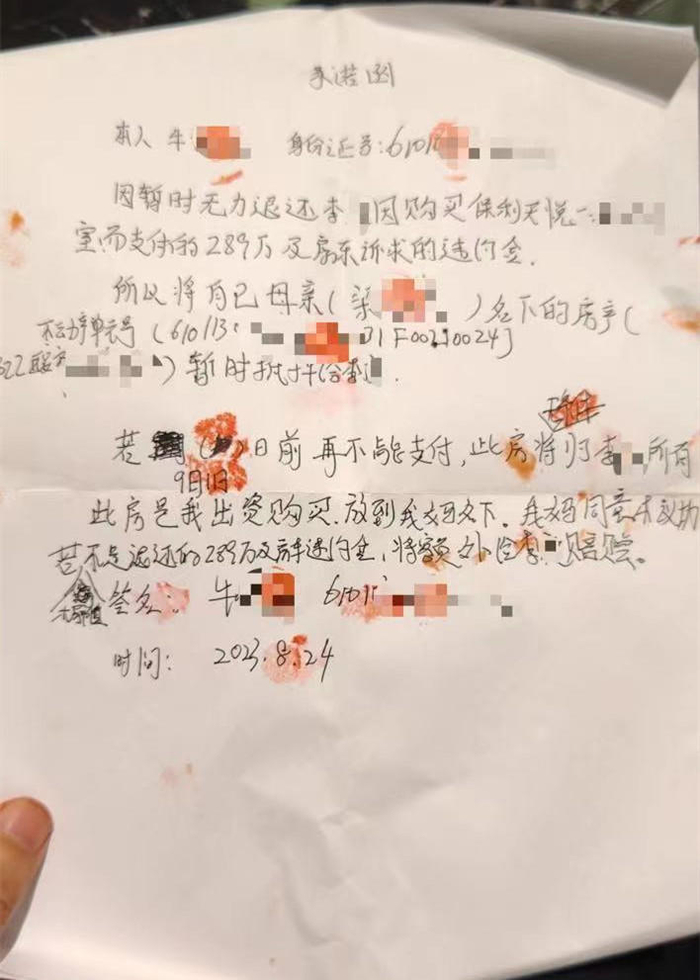 承诺函
本人 牛 身份证号:6101
因暂时无力退还李 因购买保利天悦一
室而支付的289万及房东诉求的违约金.
所以将自已母亲(梁 )名下的房产(
不动产单元号(610113 01F00210024)
)暂时抵押给李 .
若 日前再不能支付,此房将归李 所有
9月1日
此房是我出资购买.放到我妈名下.我妈同意
若不足退还的289万及房东违约金,将 李 赔偿。
签名: 牛 6101
时间: 2023.8.24